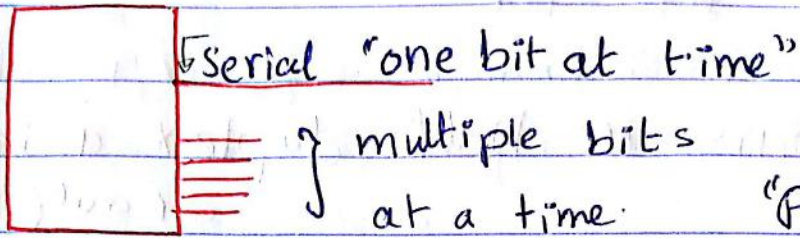 Serial "one bit at time"
multiple bits
at a time.